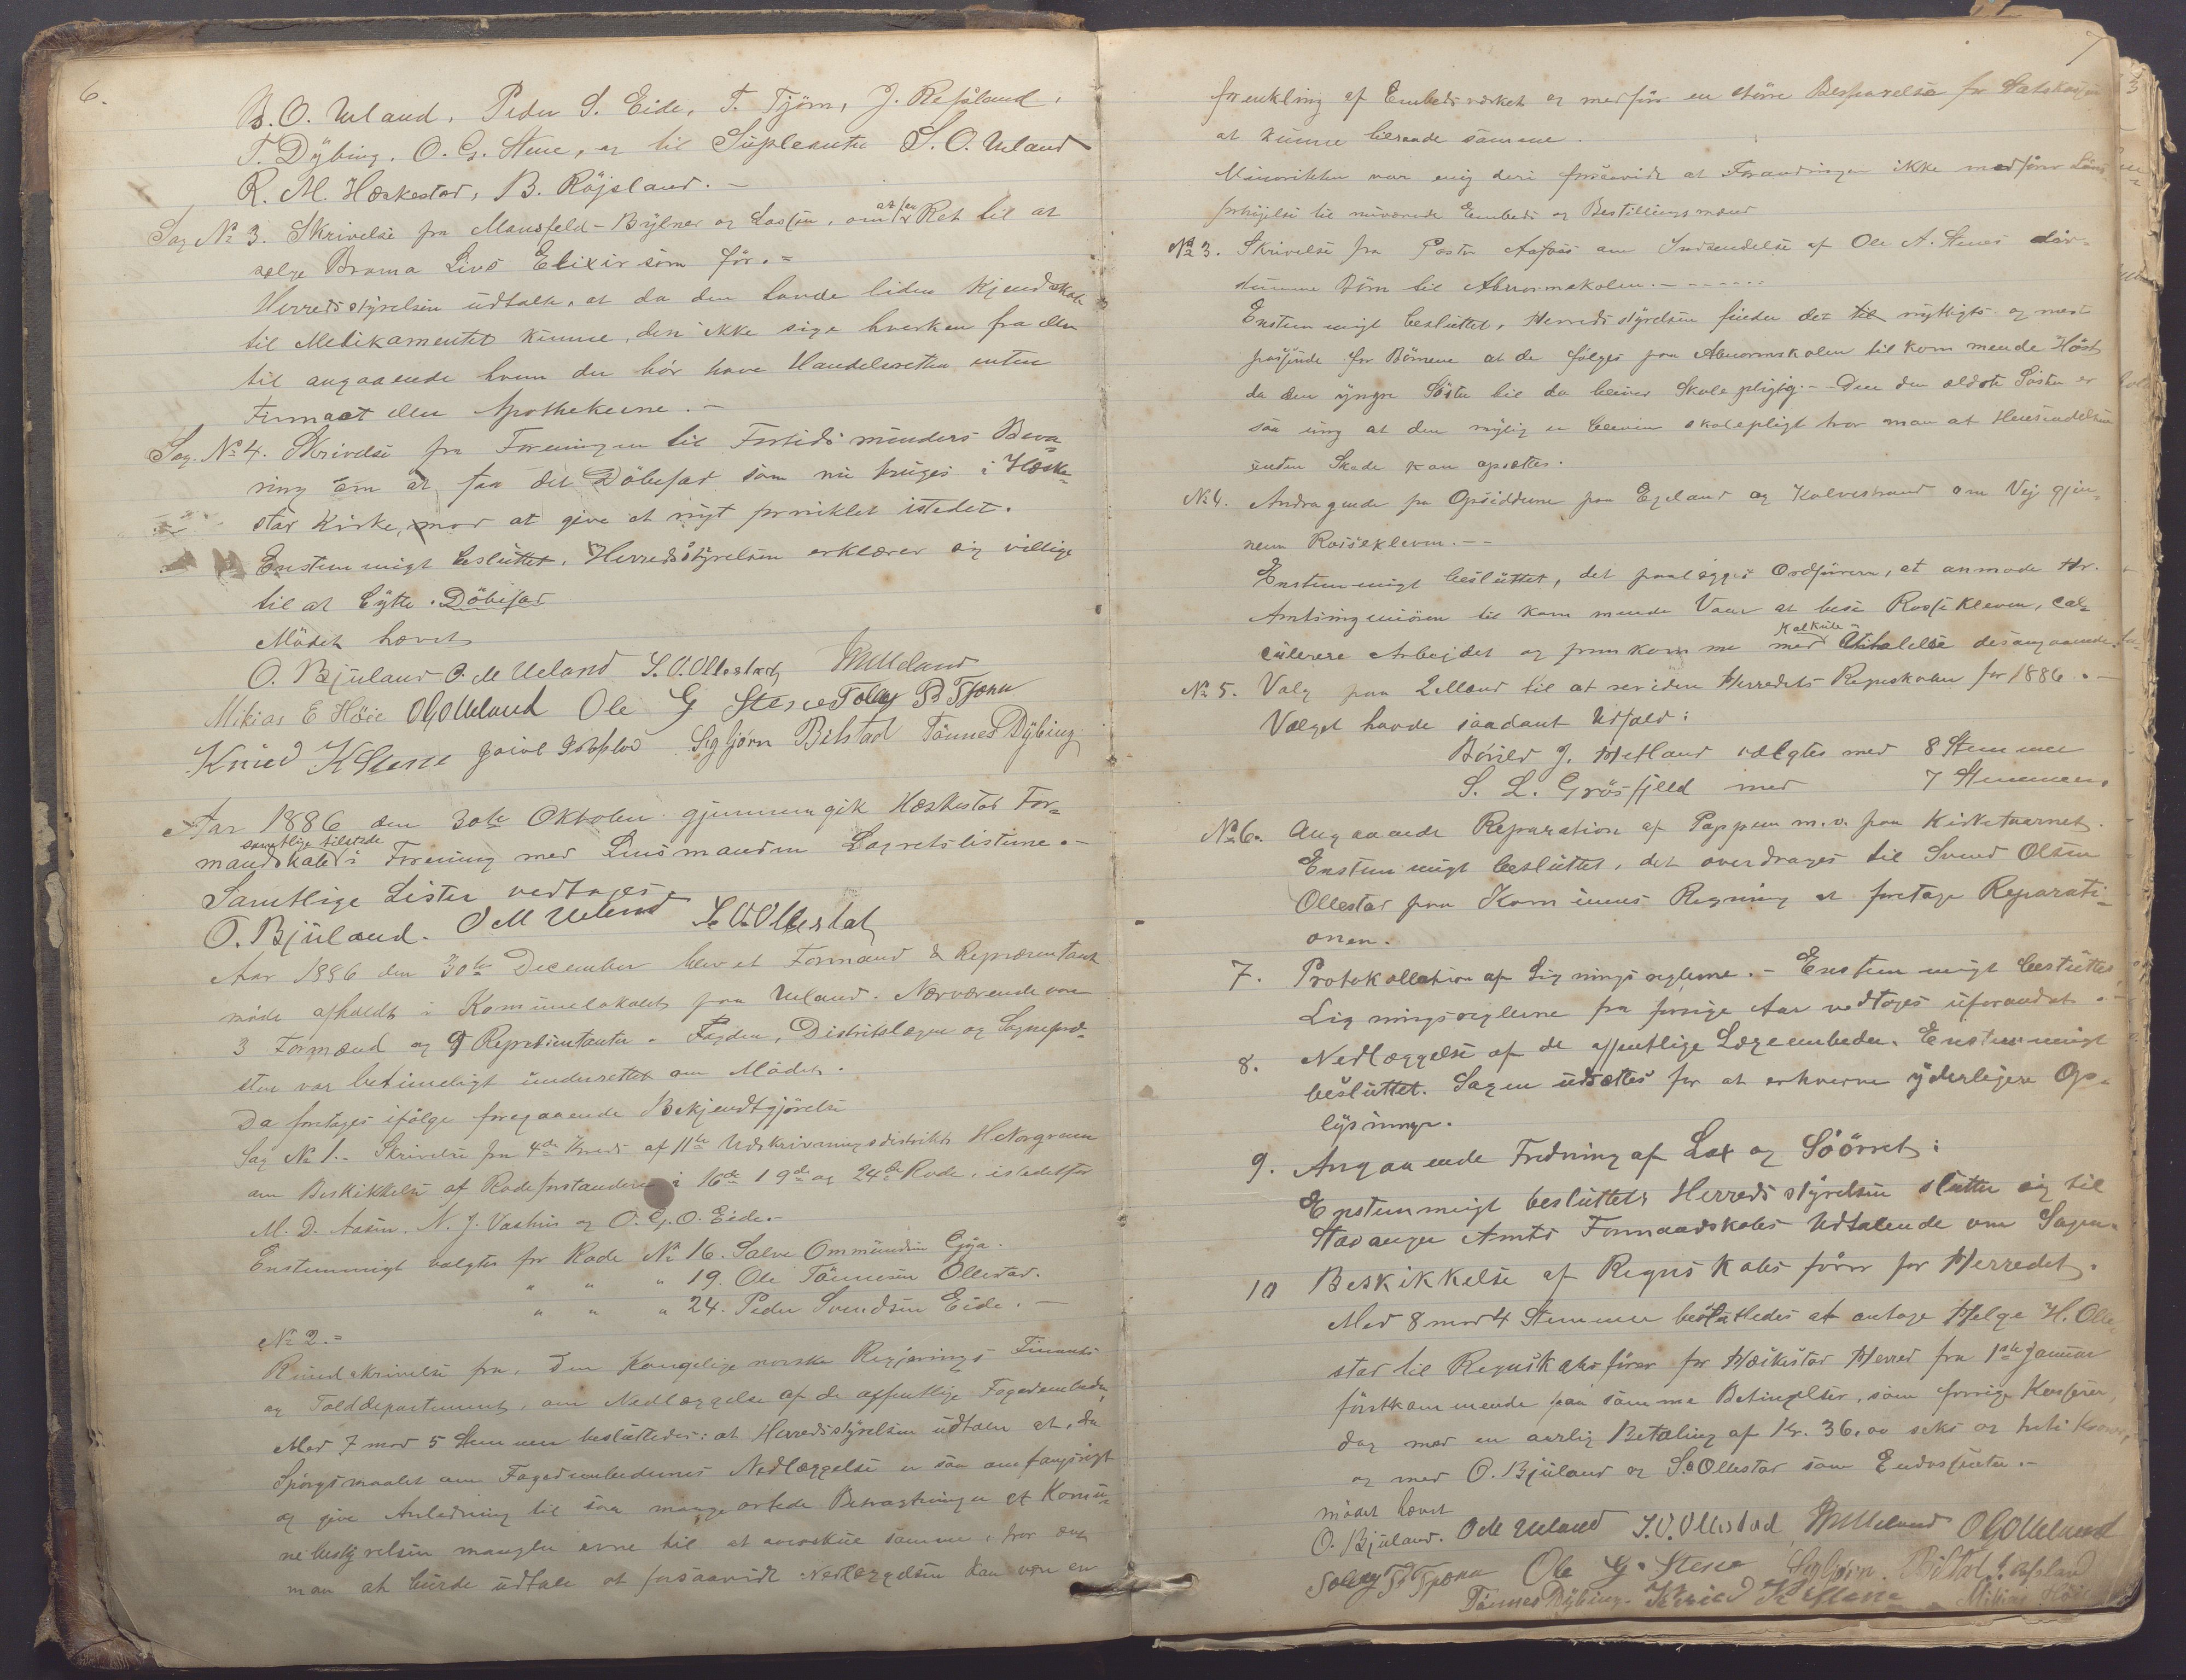 6.
B. O. Ueland, Peder S. Eide, T. Tjörn, J. Refsland,
T. Dÿbing, O. G. Stene, og til Supleanter S. O. Ueland
R. M. Hæskestad, B. Röjsland.-
Sag No 3. Skrivelse fra Mansfeld-Bÿlner og Lassen, om at faa Ret til at
sælge Brama Livs Elixir som för.=
Herredsstÿrelsen udtalte, at da den havde liden Kjendskab
til Medikamentet kunne den ikke sige hverken fra eller
til angaaende hvem der bör have Handelsretten enten
Firmaet eller Apothekerne.-
Sag No 4. Skrivelse fra Foreningen til Fortids minders Beva-
ring om at faa det Döbefad som nu bruges i Hæske-
stad Kirke, mod at give et nÿt forniklet istedet.
Enstemmigt besluttet. Herredsstÿrelsen erklærer sig villige
til at bÿtte Döbefad
Mödet hævet
O. Bjuland O. M Ueland S. O. Ollestad
Mikias E Höie O G O Ueland Ole G Stene Tolleg B Tjørn
Knud K Stene Sigbjørn Bilstad Tönnes Dÿbing
Aar 1886 den 30te Oktober gjennemgik Hæskestad For-
mandskab samtlige tilstede i Forening med Lensmanden Lagretslisterne.-
Samtlige Lister vedtages.
O. Bjuland. O M Ueland S. O. Ollestad
Aar 1886 den 30te December blev et Formand & Repræsentant
möde afholdt i Komunelokalet paa Ueland. Nærværende var
3 Formænd og 9 Repræsentanter. Fogden, Distriktslægen og Sognepræ-
sten var betimeligt underrettet om Mödet.
Da foretages ifölge foregaaende Bekjendtgjörelse
Sag No 1.- Skrivelse fra 4de Kreds af 11te Udskrivningsdistrikt
om Beskikkelse af Rodeforstandere i 16de 19de og 24de Rode, istedetfor
M. D. Aasen, N. J. Vashus og O. G. O. Eide.-
Enstemmigt valgtes for Rode No 16. Salve Ommundsen Gÿa.
" " " 19. Ole Tönnesen Ollestad.
" " " 24. Peder Svendsen Eide.-
No 2.=
Rundskrivelse fra, den Kongelige norske Regjerings Finants
og Tolddepartement, om Nedlæggelse af de offentlige Fogedembeder,
Med 7 mod 5 Stemmer besluttedes: at Herredsstÿrelsen udtaler at, da
Spörgsmaalet om Fogedembedernes Nedlæggelse er saa omfangsrigt
og give Anledning til saa mangeartede Betragtninger at Komu-
nebestÿrelsen mangler evne til at overskue samme, tror dog
man at burde udtale at forsaavidt Nedlæggelsen kan være en
7
forenkling af Embedsverket og medför en större Besparelse for Statskassen
at kunne tilraade samme.
Minoriteten var enig deri forsaavidt at Forandringen ikke medförer Löns-
forhöjelse til nuværende Embeds og Bestillingsmænd
No 3. Skrivelse fra Pastor om Indsendelse af Ole A. Stenes döv-
stumme Börn til Abnormskolen.-
Enstemmigt besluttet, Herredsstÿrelsen finder det til nÿttigts og mest
passende for Börnene at de fölges paa Abnormskolen til kommende Höst
da den ÿngre Söster til da bliver Skolepligtig.- Den den ældste Söster er
saa ung at den nÿlig er bleven skolepligt tror man at Hensendelsen
uden Skade kan opsættes.
No 4. Andragende fra Opsidderne paa Egeland og Kalvestrand om Vej gjen-
nem Rossekleven.--
Enstemmigt besluttet, det paalægges Ordföreren, at anmode Hr.
Amtsingeniören til kommende Vaar at bese Rossekleven, cal-
culere Arbejdet og fremkomme med Kalkule Udtalelse desangaaende.
No 5. Valg paa 2 Mænd til at revidere Herredets Regnskaber for 1886.-
Valget havde saadant Udfald:
Börild J. Hetland valgtes med 8 Stemmer
S. L. Grösfjeld med 7 Stemmer.
No 6. Angaaende Reparation af Pappen m.v. paa Kirketaarnet.
Enstemmigt besluttet, det overdrages til Svend Olsen
Ollestad paa Komunens Regning at foretage Reparati-
onen.
7. Protokollation af Ligningsreglerne.- Enstemmigt besluttet
Ligningsreglerne fra forrige Aar vedtages uforandret.-
8. Nedlæggelse af de offentlige Lægeembeder. Enstemmigt
besluttet. Sagen udsættes for at erhverve ÿderligere Op-
lÿsninger.
9. Angaaende Fredning af Lax og Söörret:
Enstemmigt besluttet, Herredsstÿrelsen slutter sig til
Stavanger Amts Formandskabs Udtalende om Sagen.
10 Beskikkelse af Regnskabsförer for Herredet.
Med 8 mod 4 Stemmer besluttedes at antage Helge H. Olle-
stad til Regnskabsförer for Hæskestad Herred fra 1ste Januar
förstkommende paa samme Betingelser, som forrige Kasserer,
dog med en aarlig Betaling af Kr. 36,00 seks og treti Kroner,
og med O. Bjuland og S. O. Ollestad som Endossenter.-
mödet hævet
O. Bjuland. O M Ueland S. O. Ollestad O G O Ueland
Tolleg B Tjørn Ole G. Stene Sigbjørn Bilstad
Tönnes Dÿbing. Knud K Stene Mikias Höie